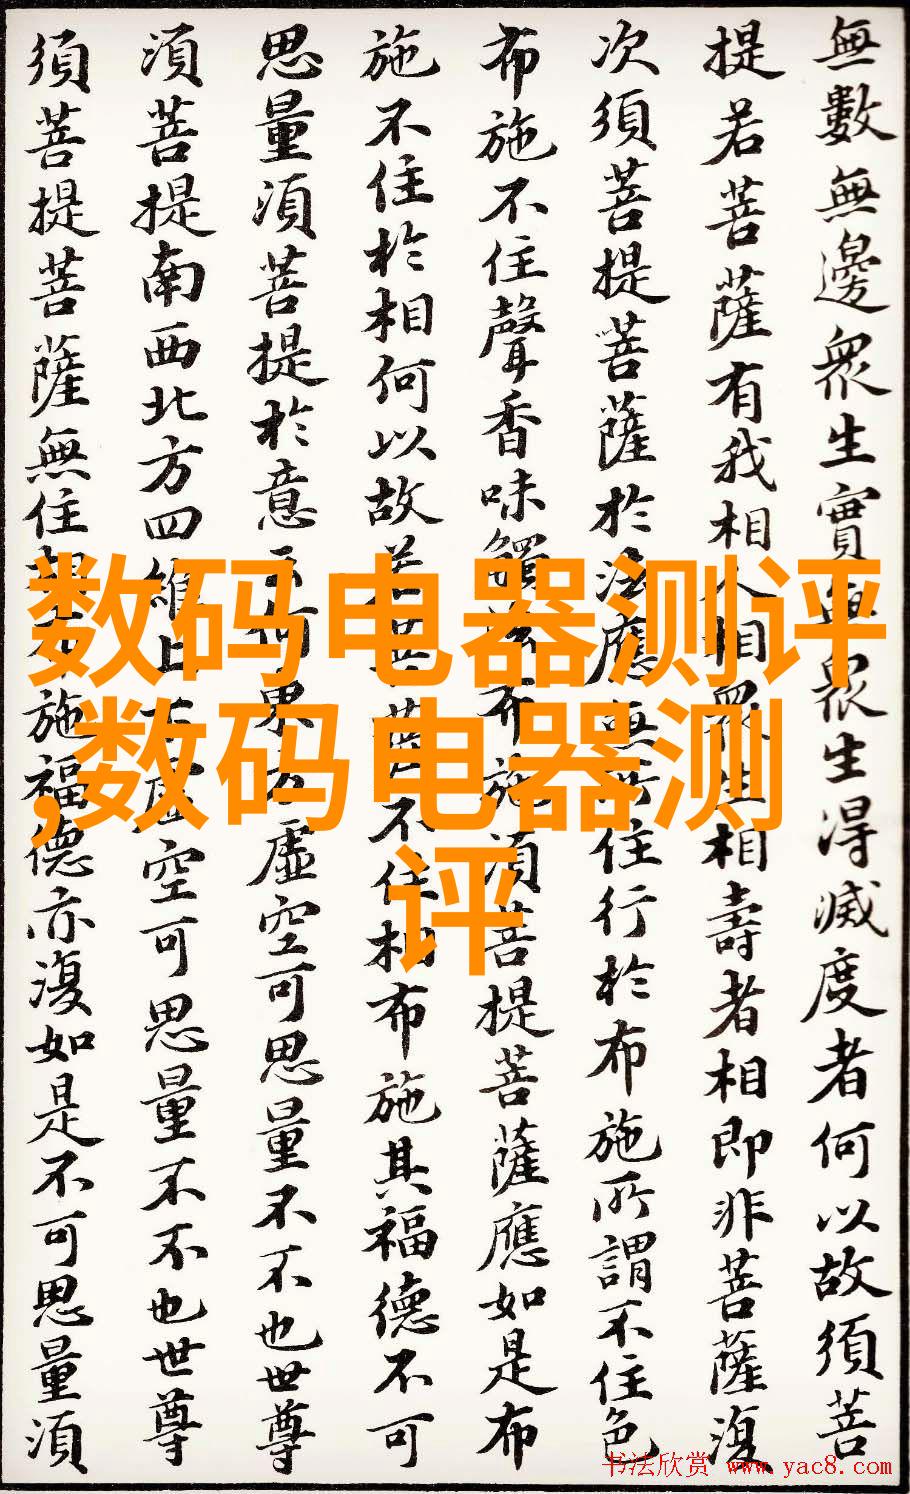 無數無邊眾生實無眾生得滅度者何以故須菩
提若菩薩有我相人相眾生相壽者相即非菩薩復
次須菩提菩薩於法應無所住行於布施所謂不住色
布施不住聲香味觸法布施須菩提菩薩應如是布
施不住於相何以故若菩薩不住相布施其福德不可
思量須菩提於意云何東方虛空可思量不不也世尊
須菩提南西北方四維上下虛空可思量不不也世尊
須菩提菩薩無住相布施福德亦復如是不可思量須
数码电器测评
,数码电器测
评
书法欣赏 www.yac8.com